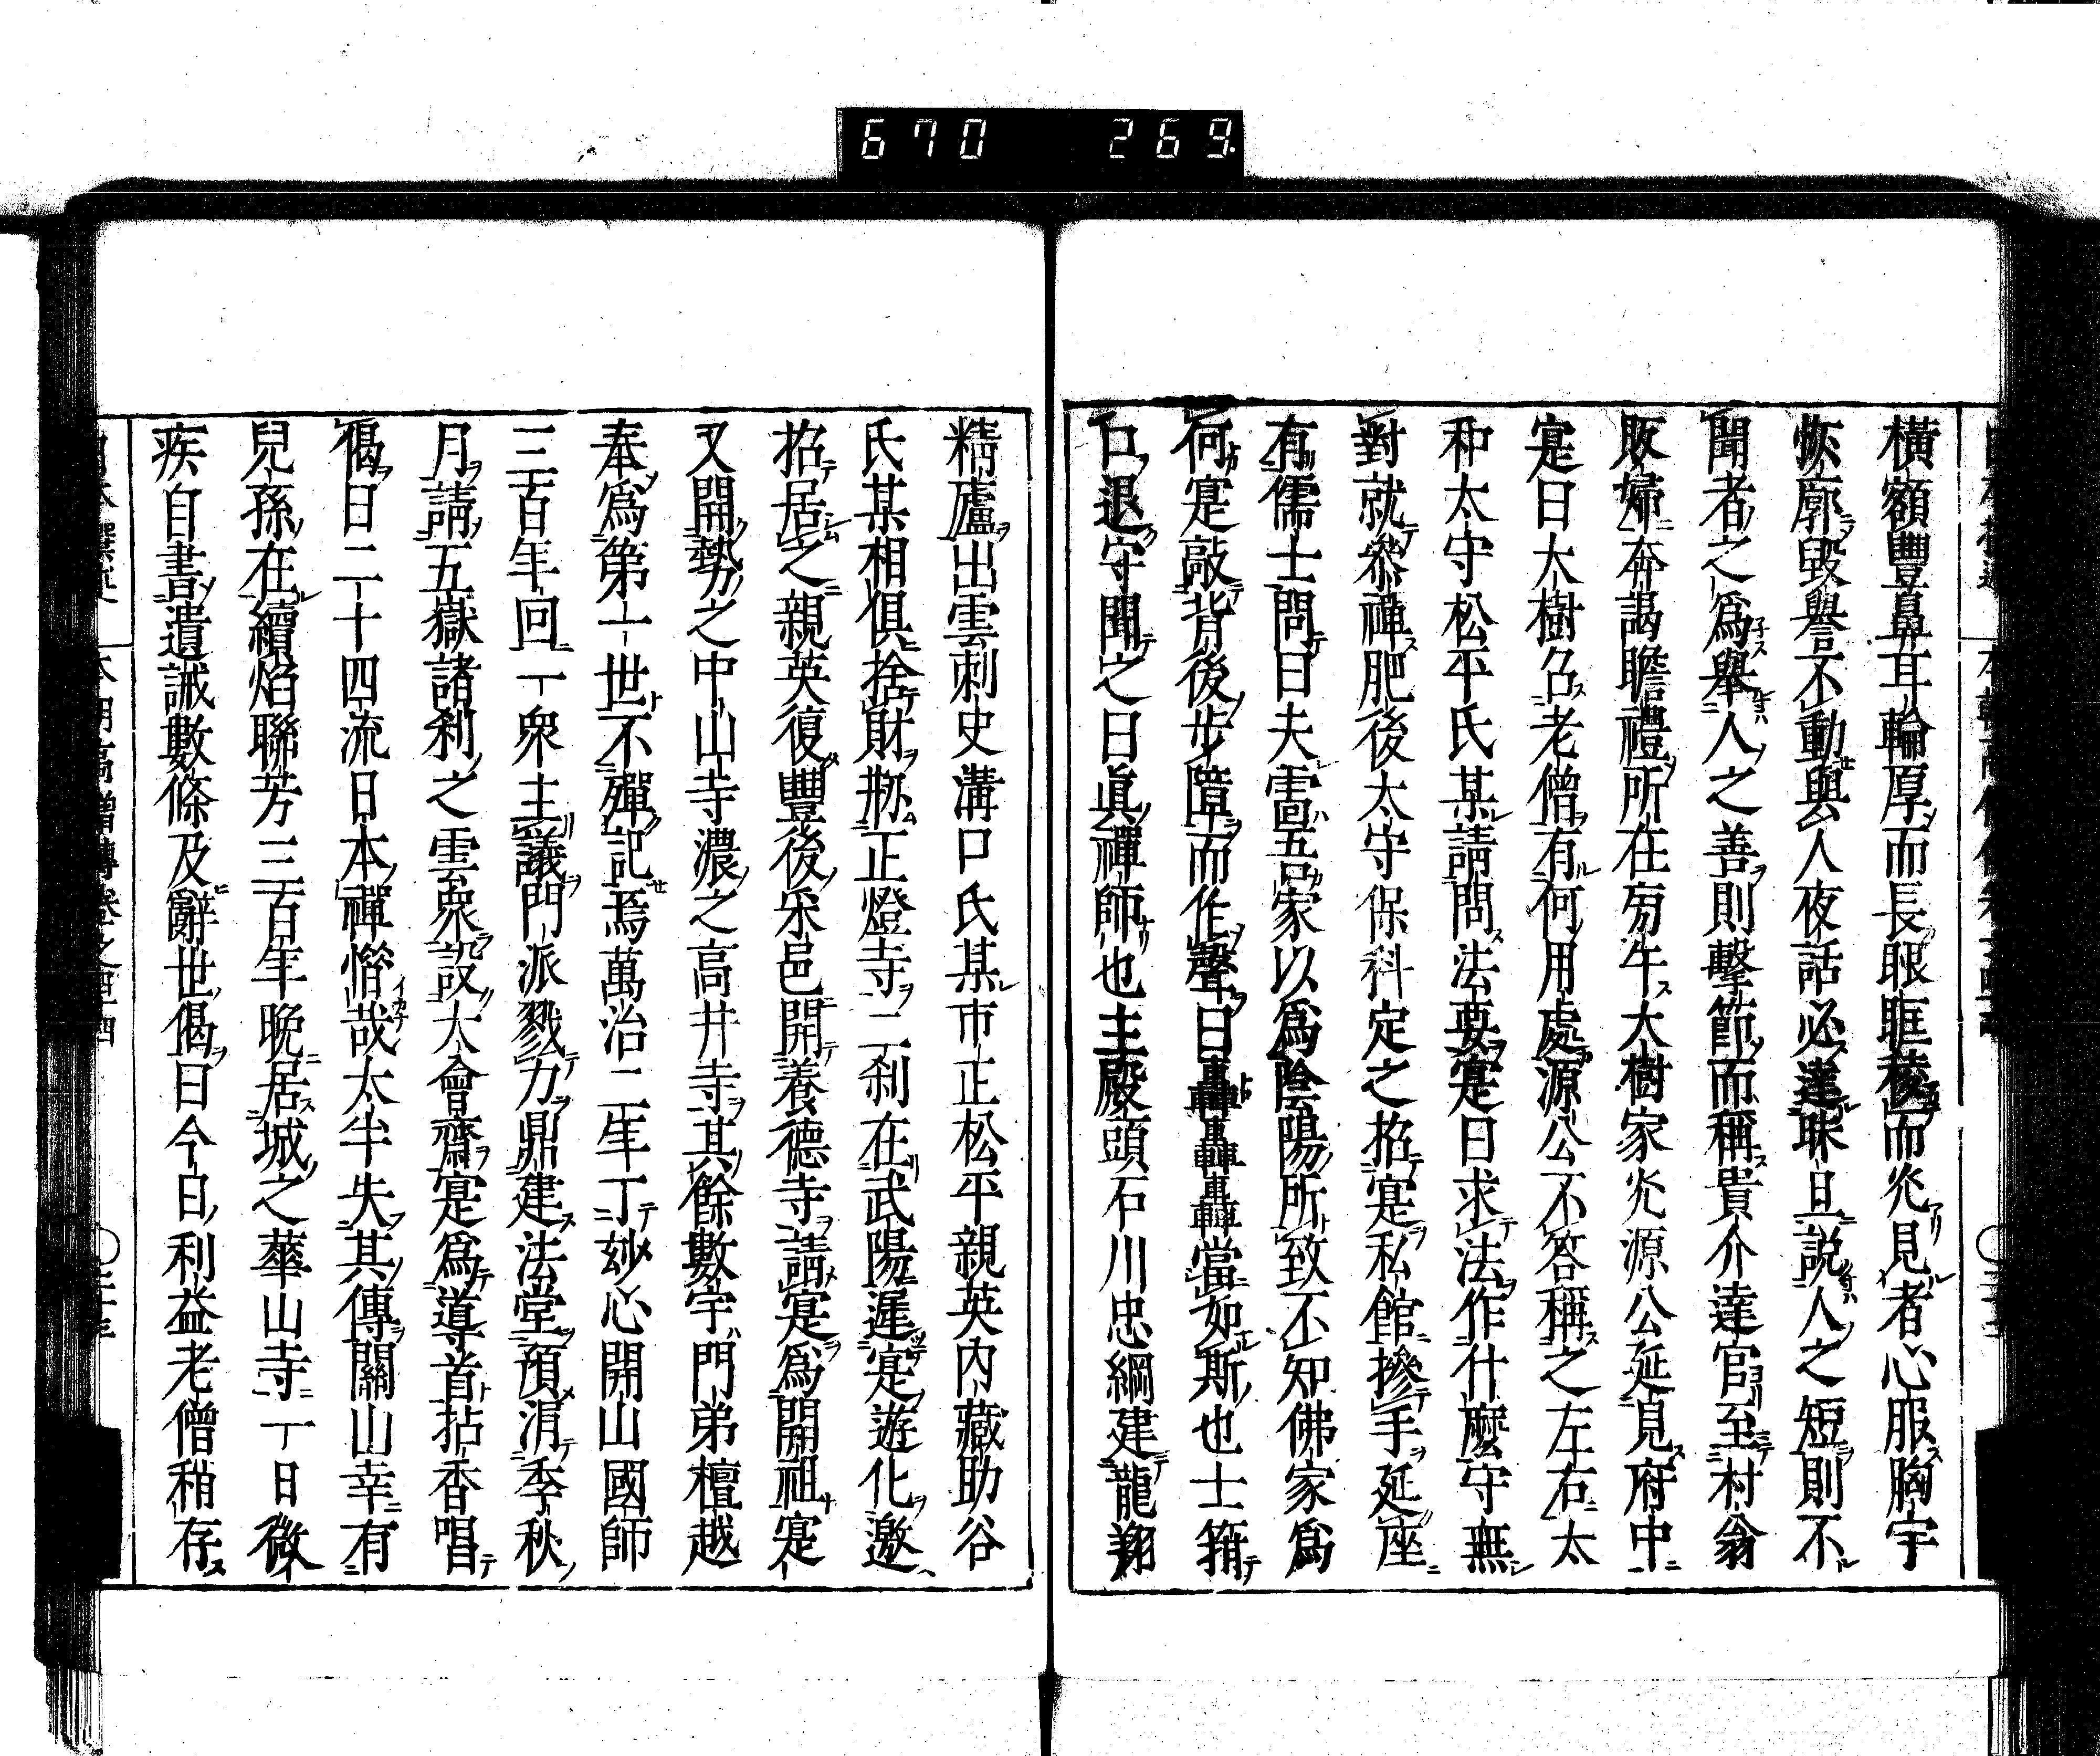 670 269
橫額豐鼻耳輪厚而長眼眶稜而炎見者心服胸宇
恢廓毀譽不動與人夜話必達昧旦說人之短則不
聞者之爲舉人之善則擊節而稱貴介達官至村翁
販婦奔謁瞻禮所在旁午大樹家炎源公延見府中
寔曰大樹召老僧有何用處源公不答稱之左右太
和太守松平氏某請問法要寔曰求法作什麼守無
對就參禪肥後太守保科定之招寔私館摻手延座
有儒士問曰夫雷吾家以爲陰陽所致不知佛家爲
何寔敲背後步障而作聲曰轟轟轟當如斯也士箝
口退守聞之曰眞禪師也主殿頭石川忠綱建龍翔
精廬出雲刺史溝口氏某市正松平親英內藏助谷
氏某相俱捨財剏正燈寺二刹在武陽遲寔遊化邀
招居之親英復豐後采邑開養德寺請寔爲開祖寔
又開勢之中山寺濃之高井寺其餘數宇門弟檀越
奉爲第一世不殫記焉萬治二年丁妙心開山國師
三百年回一衆主議門派戮力鼎建法堂預涓季秋
月請五嶽諸刹之雲衆設大會齋寔爲導首拈香唱
偈曰二十四流日本禪惜哉太半失其傳關山幸有
兒孫在續焰聯芳三百年晚居城之華山寺一日微
疾自書遺誡數條及辭世偈曰今日利益老僧稍存
本朝高僧傳卷之四十四